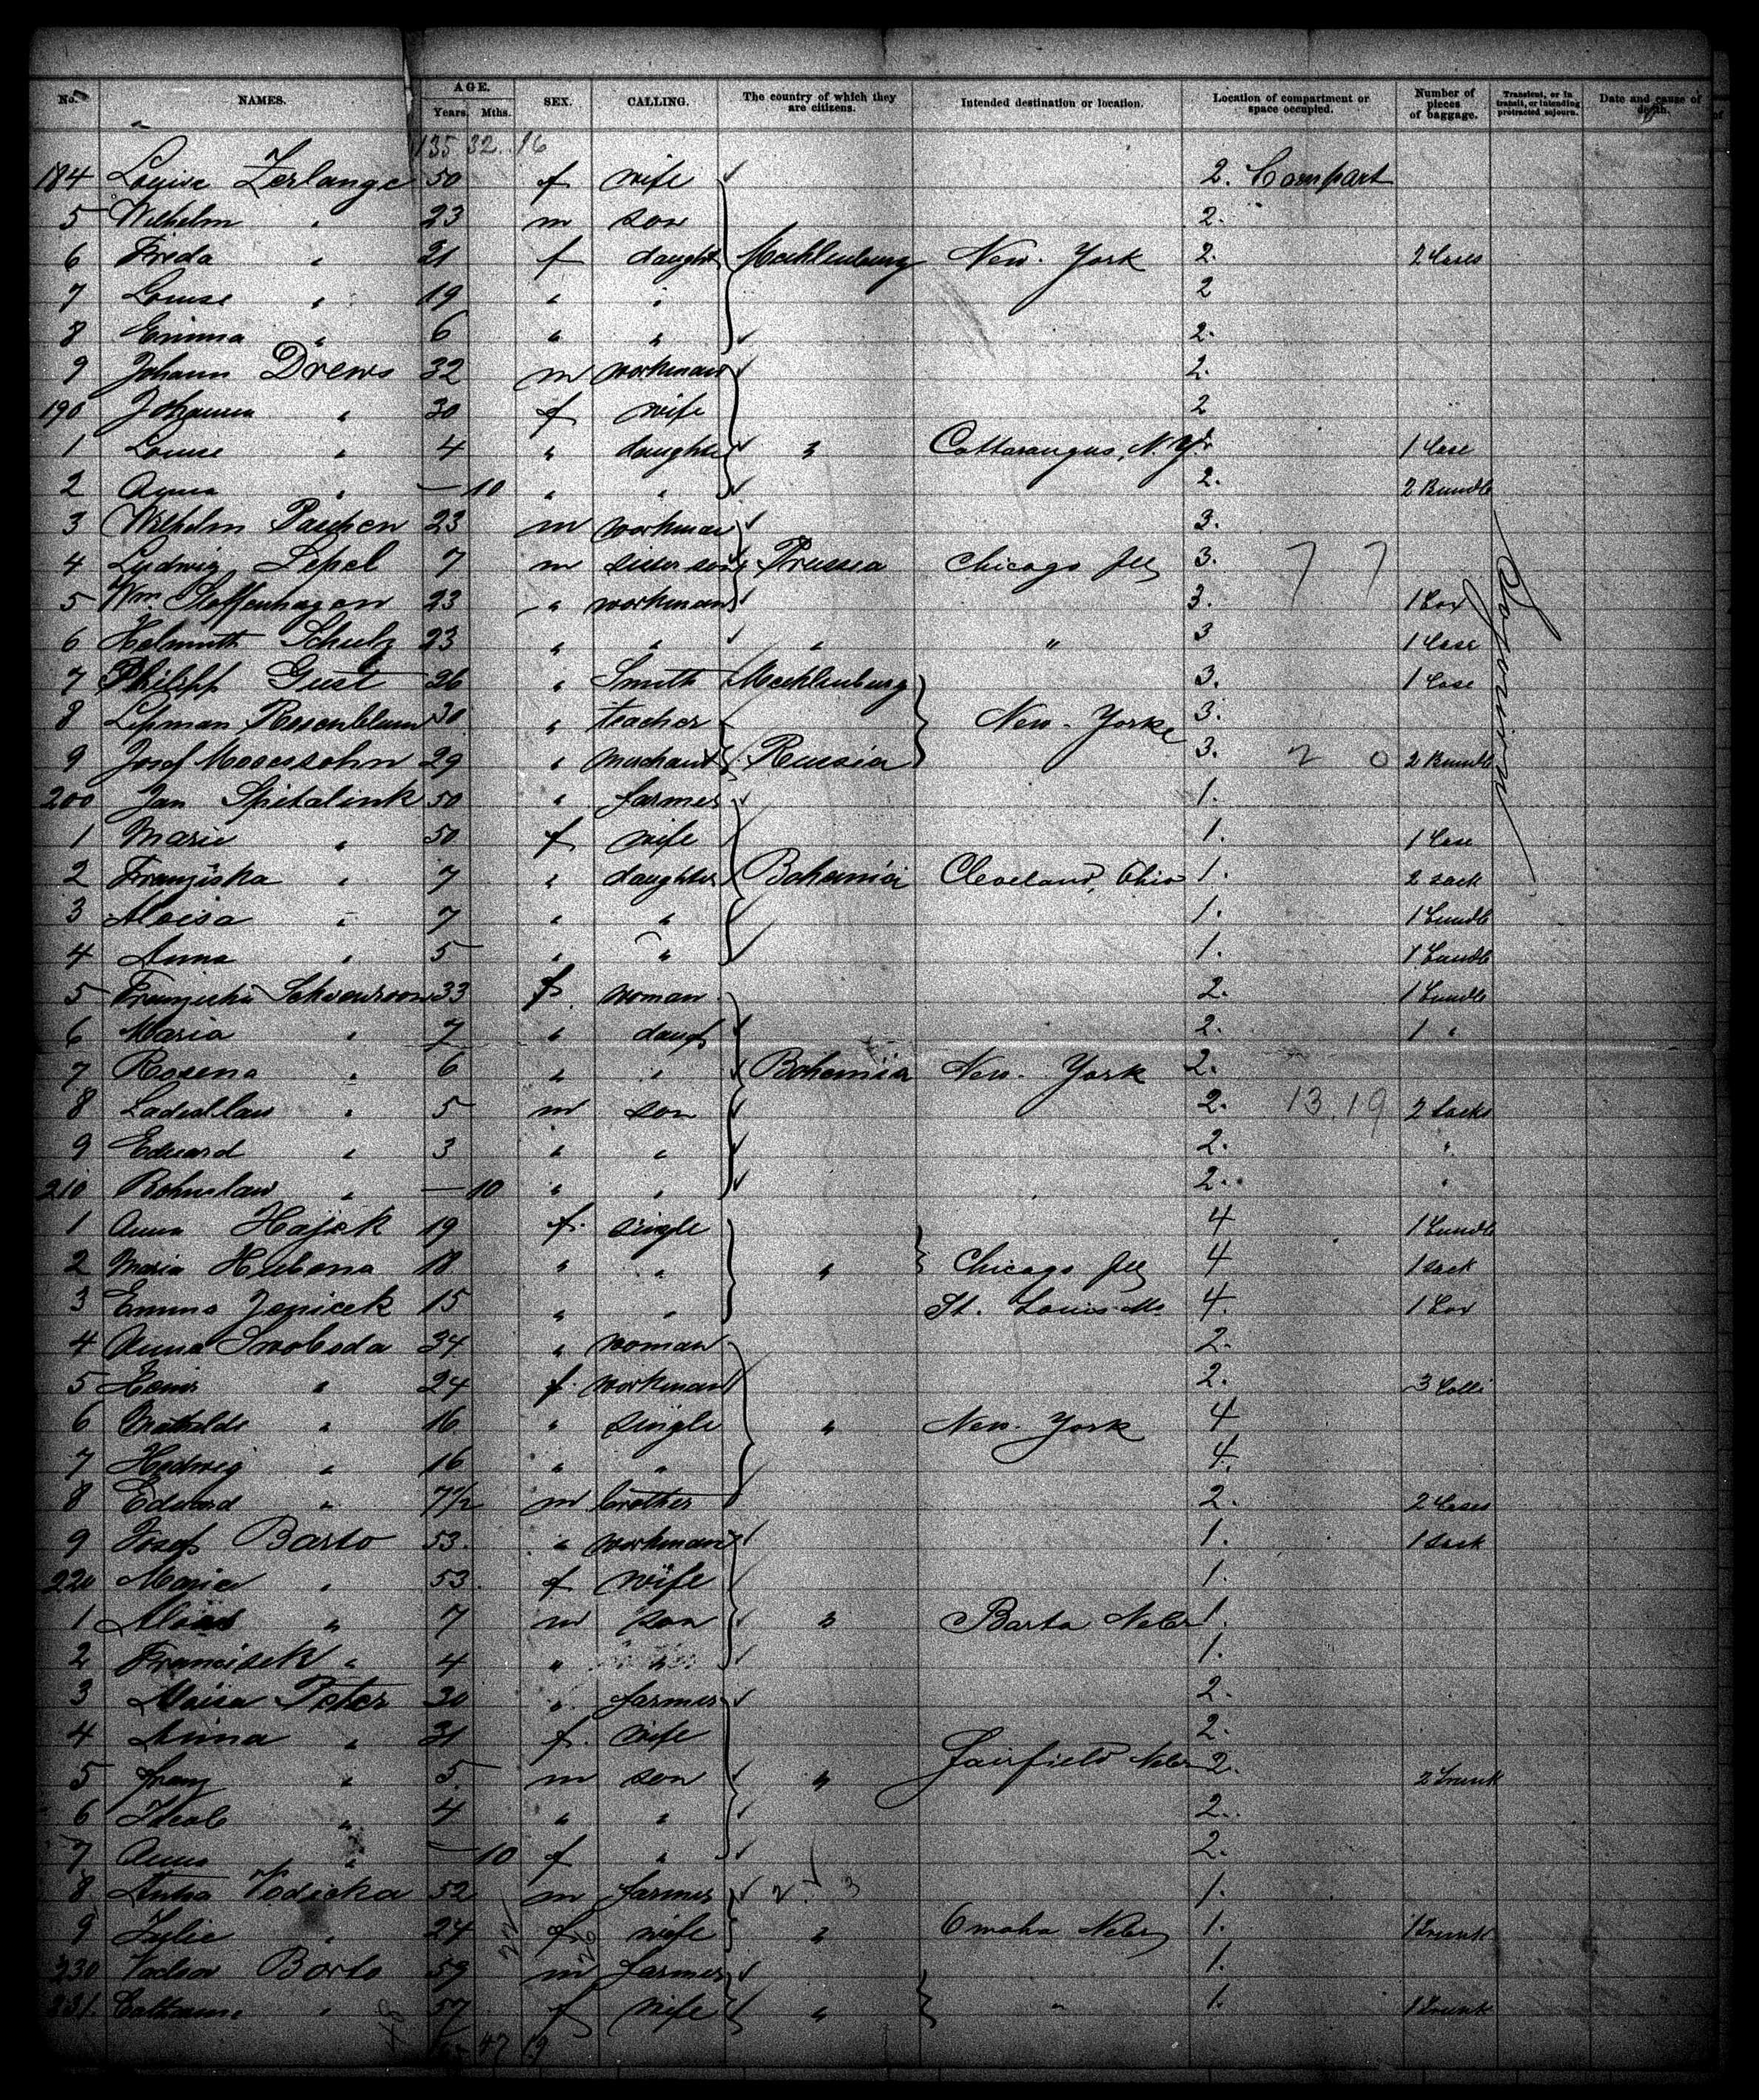 No. NAMES. AGE. Years. Mths. SEX. CALLING. The country of which they are citizens. Intended destination or location. Location of compartment or space occupied. Number of pieces of baggage. Transient, or in transit, or intending protracted sojourn. Date and cause of death.
135 32 16
184 Louise Zerlange 50 f wife 2. Compart
5 Wilhelm " 23 m son 2.
6 Frieda " 21 f daught Mecklenburg New-York 2. 2 Cases
7 Louise " 19 " " 2
8 Emma " 6 " " 2.
9 Johann Drews 32 m workman 2.
190 Johanna " 30 f wife 2
1 Louise " 4 " daughte " Cattaraugus, N.Y. 1 Case
2 Anna " — 10 " " 2. 2 Bundle
3 Wilhelm Paschen 23 m workman 3.
4 Ludwig Lepel 7 m sister son Prussia Chicago Ill 3. 7 7
5 Wm Stoffenhagen 23 " workman 3. 1 box
6 Helmuth Schulz 23 " " " " 3 1 Case
7 Philipp Gust 26 " Smith Mecklenburg 3. 1 Case
8 Lipman Rosenblum 30 " teacher New-York 3.
9 Josef Mosessohn 29 " merchant Russia 3. 2 0 2 Bundle
200 Jan Spitalink 50 " farmer 1.
1 Marie " 50 f wife 1. 1 Case
2 Franziska " 7 " daughter Bohemia Cleveland, Ohio 1. 2 sack
3 Aloisa " 7 " " 1. 1 bundle
4 Anna " 5 " " 1. 1 bundle
5 33 f woman 2. 1 bundle
6 Maria " 7 " daugt 2. 1 "
7 Rosena " 6 " " Bohemia New-York 2.
8 Ladisllaw " 5 m son 2. 13.19 2 Sacks
9 Eduard " 3 " " 2. "
210 Bohuslaw " — 10 " " 2. "
1 Anna Hajek 19 f. single 4 1 bundle
2 Maria Hubena 18 " " " Chicago Ill 4 1 sack
3 Emma Jenicek 15 " " St. Louis Mo 4. 1 box
4 Anna Swoboda 34 " woman 2.
5 " 24 f. workman 2. 3 Colli
6 Mathilde " 16. " single " New-York 4
7 Hedwig " 16 " " 4.
8 Eduard " 7½ m brother 2. 2 Cases
9 Josef Barto 53. " workman 1. 1 sack
220 Maria " 53. f wife 1.
1 Alois " 7 m son " Barta Nebr 1.
2 Francisek " 4 " " 1.
3 Peter 30 " farmer 2.
4 Anna " 31 f. wife 2.
5 Franz " 5. m son " Fairfield Nebr 2. 2 trunk
6 " 4 " " 2.
7 Anna " — 10 f " 2.
8 Vodicka 52 m farmer 2. 3 1.
9 Julie " 24 f wife " Omaha Nebr 1. 1 trunk
230 Barto 59 m farmer 1.
231. " 57 f wife " " 1. 1 trunk
47 19